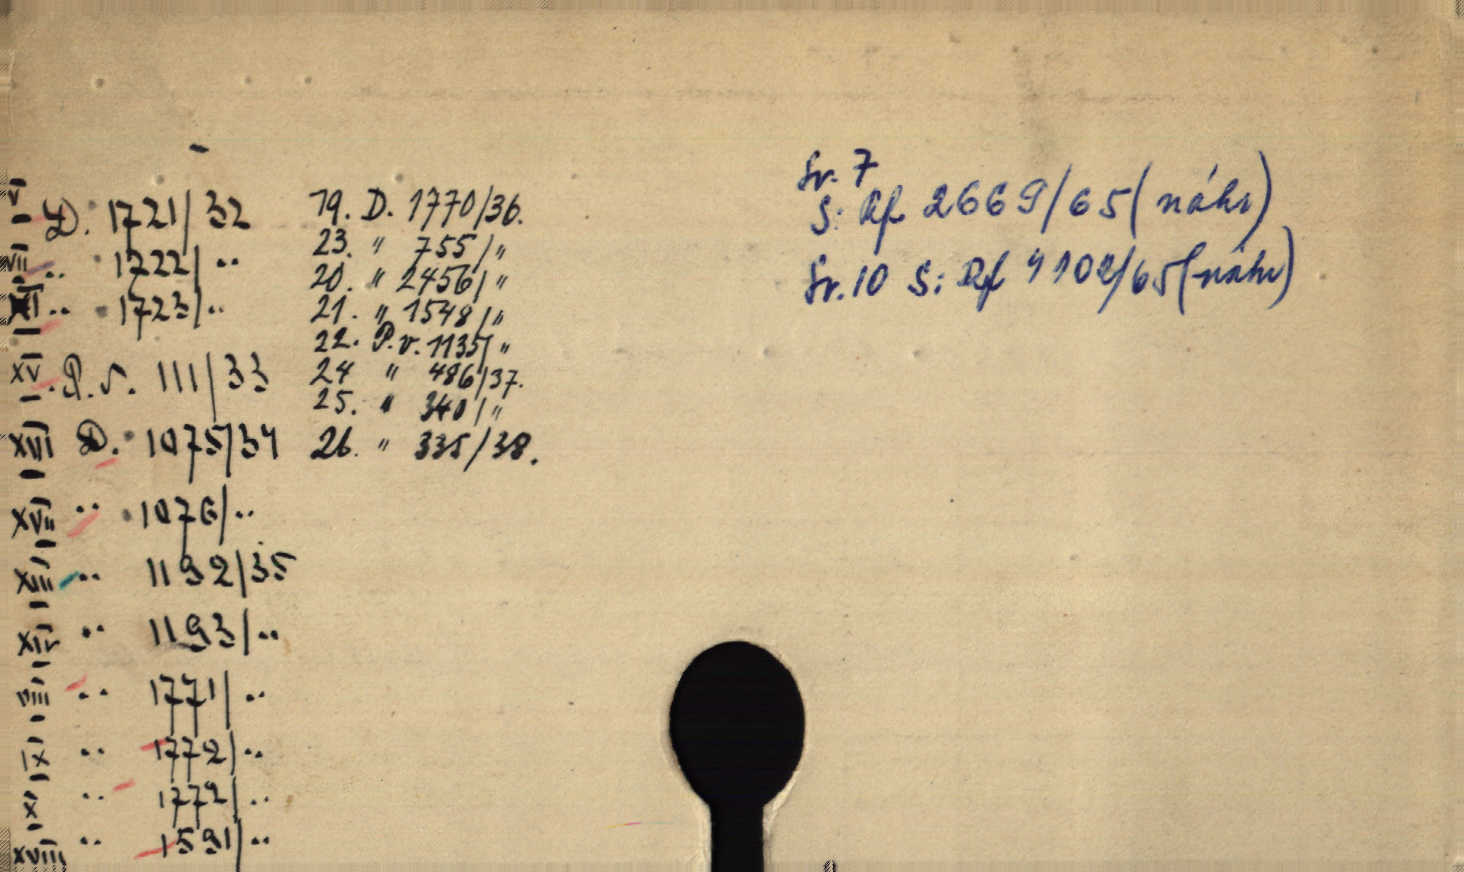 V D. 1721/32
VII .. 1722/..
XI .. 1723/..
XV. P.v. 111/33
XVI D. 1075/34
XVII .. 1076/..
XIII .. 1192/35
XIV .. 1193/..
VIII .. 1771/..
IX .. 1772/..
X .. 1772/..
XVIII .. 1591/..
19. D. 1770/36.
23. " 755/"
20. " 2456/"
21. " 1548/"
22. P.v. 1135/"
24 " 486/37.
25. " 340/"
26. " 335/38.
Sv. 7
S: Rf 2669/65 (náhr)
Sv. 10 S: Rf 4102/65 (náhr)